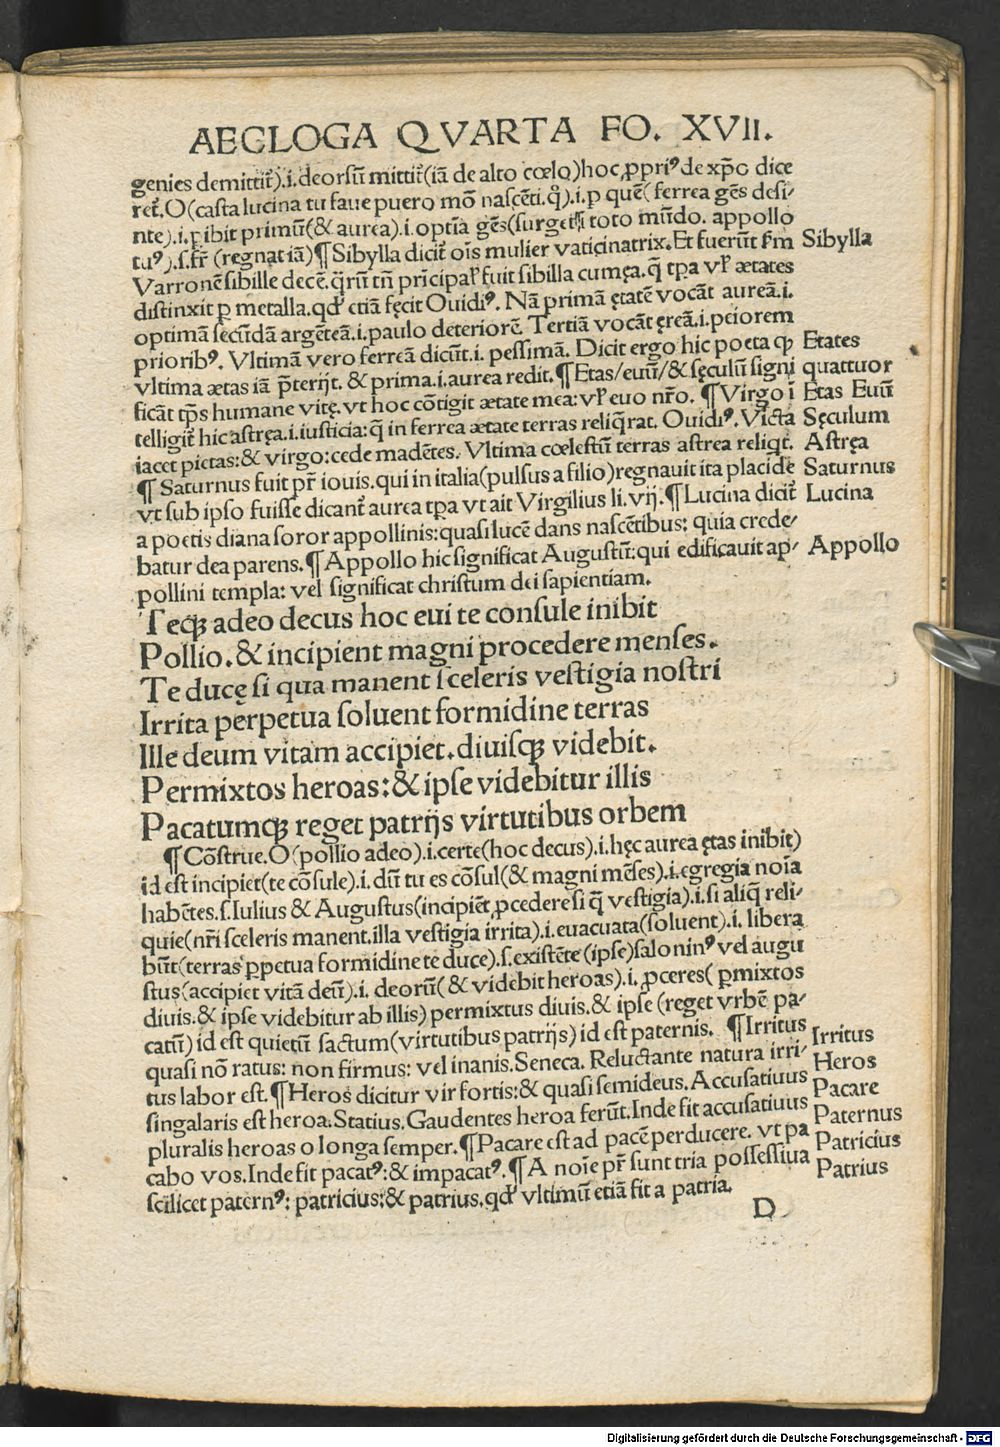 AEGLOGA QVARTA FO. XVII.
genies demittit̄).i.deorsū mittit̄(iā de alto cœlo)hoc,ppriꝰ de xp̄o dice
ret̄.O(casta lucina tu faue puero mō nascēti.q̄).i.p quē(ferrea gēs desi/
nte).i.ꝑibit primū(& aurea).i.optīa gēs(surget)ī toto mūdo. appollo
tuꝰ).s.fr̄(regnat iā)¶Sibylla dicit̄ oīs mulier vaticinatrix.Et fuerūt ẜm Sibylla
Varronē sibille decē.q̄rū tn̄ prīcipaƚ fuit sibilla cumęa.q̄ tp̄a vƚ ætates
distinxit ꝑ metalla.qd' etiā fęcit Ouidiꝰ. Nā primā ętatē vocāt aureā.i.
optimā secūdā argēteā.i.paulo deteriorē. Tertiā vocāt ęreā.i.peiorem
prioribꝰ. Vltimā vero ferreā dicūt.i. pessimā. Dicit ergo hic poeta ꝙ Etates
vltima ætas iā p̄terijt. & prima.i.aurea redit.¶Etas/euū/& sęculū signi quattuor
ficāt tp̄s humane vitę.vt hoc cōtigit ætate mea:vƚ euo nr̄o. ¶Virgo ī Etas Euū
telligit̄ hic astręa.i.iusticia:q̄ in ferrea ætate terras reliq̄rat. Ouidiꝰ. Victa Sęculum
iacet pietas:& virgo:cede madētes. Vltima cœlestū terras astrea reliqt. Astręa
¶Saturnus fuit pr̄ iouis.qui in italia(pulsus a filio)regnauit ita placide Saturnus
vt sub ipso fuisse dicant̄ aurea tp̄a vt ait Virgilius li.vij.¶Lucina dicit̄ Lucina
a poetis diana soror appollinis:quasi lucē dans nascētibus: quia crede/
batur dea parens.¶Appollo hic significat Augustū:qui edificauit ap/ Appollo
pollini templa: vel significat christum dei sapientiam.
Teqꝫ adeo decus hoc eui te consule inibit
Pollio.& incipient magni procedere menses.
Te ducę si qua manent sceleris vestigia nostri
Irrita pęrpetua soluent formidine terras
Ille deum vitam accipiet.diuisqꝫ videbit.
Permixtos heroas:& ipse videbitur illis
Pacatumqꝫ reget patrijs virtutibus orbem
¶Cōstrue.O(pollio adeo).i.certe(hoc decus).i.hęc aurea ętas inibit)
id est incipiet(te cōsule).i. dū tu es cōsul(& magni mēses).i.egregia noīa
habētes.s.Iulius & Augustus(incipiēt,pcedere si q̄ vestigia).i.si aliq̄ reli/
quie(nr̄i sceleris manent.illa vestigia irrita).i.euacuata(soluent).i. libera
būt(terras ꝑpetua formidine te duce).s.existēte(ipse)saloninꝰ vel augu
stus(accipiet vitā deū).i. deorū(& videbit heroas).i.,pceres(ꝑmixtos
diuis.& ipse videbitur ab illis)permixtus diuis.& ipse (reget vrbē pa/
catū)id est quietū factum(virtutibus patrijs)id est paternis. ¶Irritus Irritus
quasi nō ratus: non firmus: vel inanis.Seneca. Reluctante natura irri/ Heros
tus labor est.¶Heros dicitur vir fortis:& quasi semideus.Accusatiuus Pacare
singularis est heroa.Statius.Gaudentes heroa ferūt.Inde fit accusatiuus Paternus
pluralis heroas o longa semper.¶Pacare est ad pacē perducere. vt pa Patricius
cabo vos.Inde fit pacatꝰ:& impacatꝰ.¶A noīe pr̄ sunt tria possessiua Patrius
scilicet paternꝰ: patricius:& patrius.qd' vltimū etiā fit a patria.
D
Digitalisierung gefördert durch die Deutsche Forschungsgemeinschaft - DFG